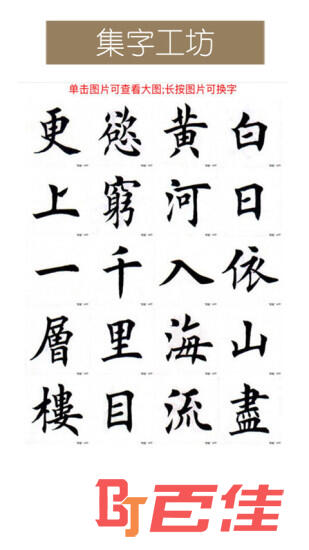 集字工坊
单击图片可查看大图;长按图片可换字
白日依山盡
黄河入海流
慾窮千里目
更上一層樓
BJ百佳